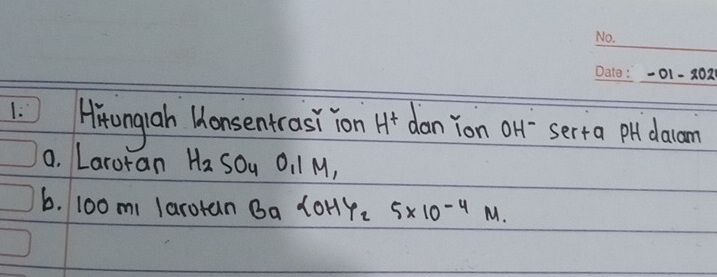 No.
Date: -01-202
1. Hitunglah Konsentrasi ion H⁺ dan ion OH⁻ serta pH dalam
a. Larutan H₂SO₄ 0,1 M,
b. 100 ml larutan Ba (OH)₂ 5x10⁻⁴ M.